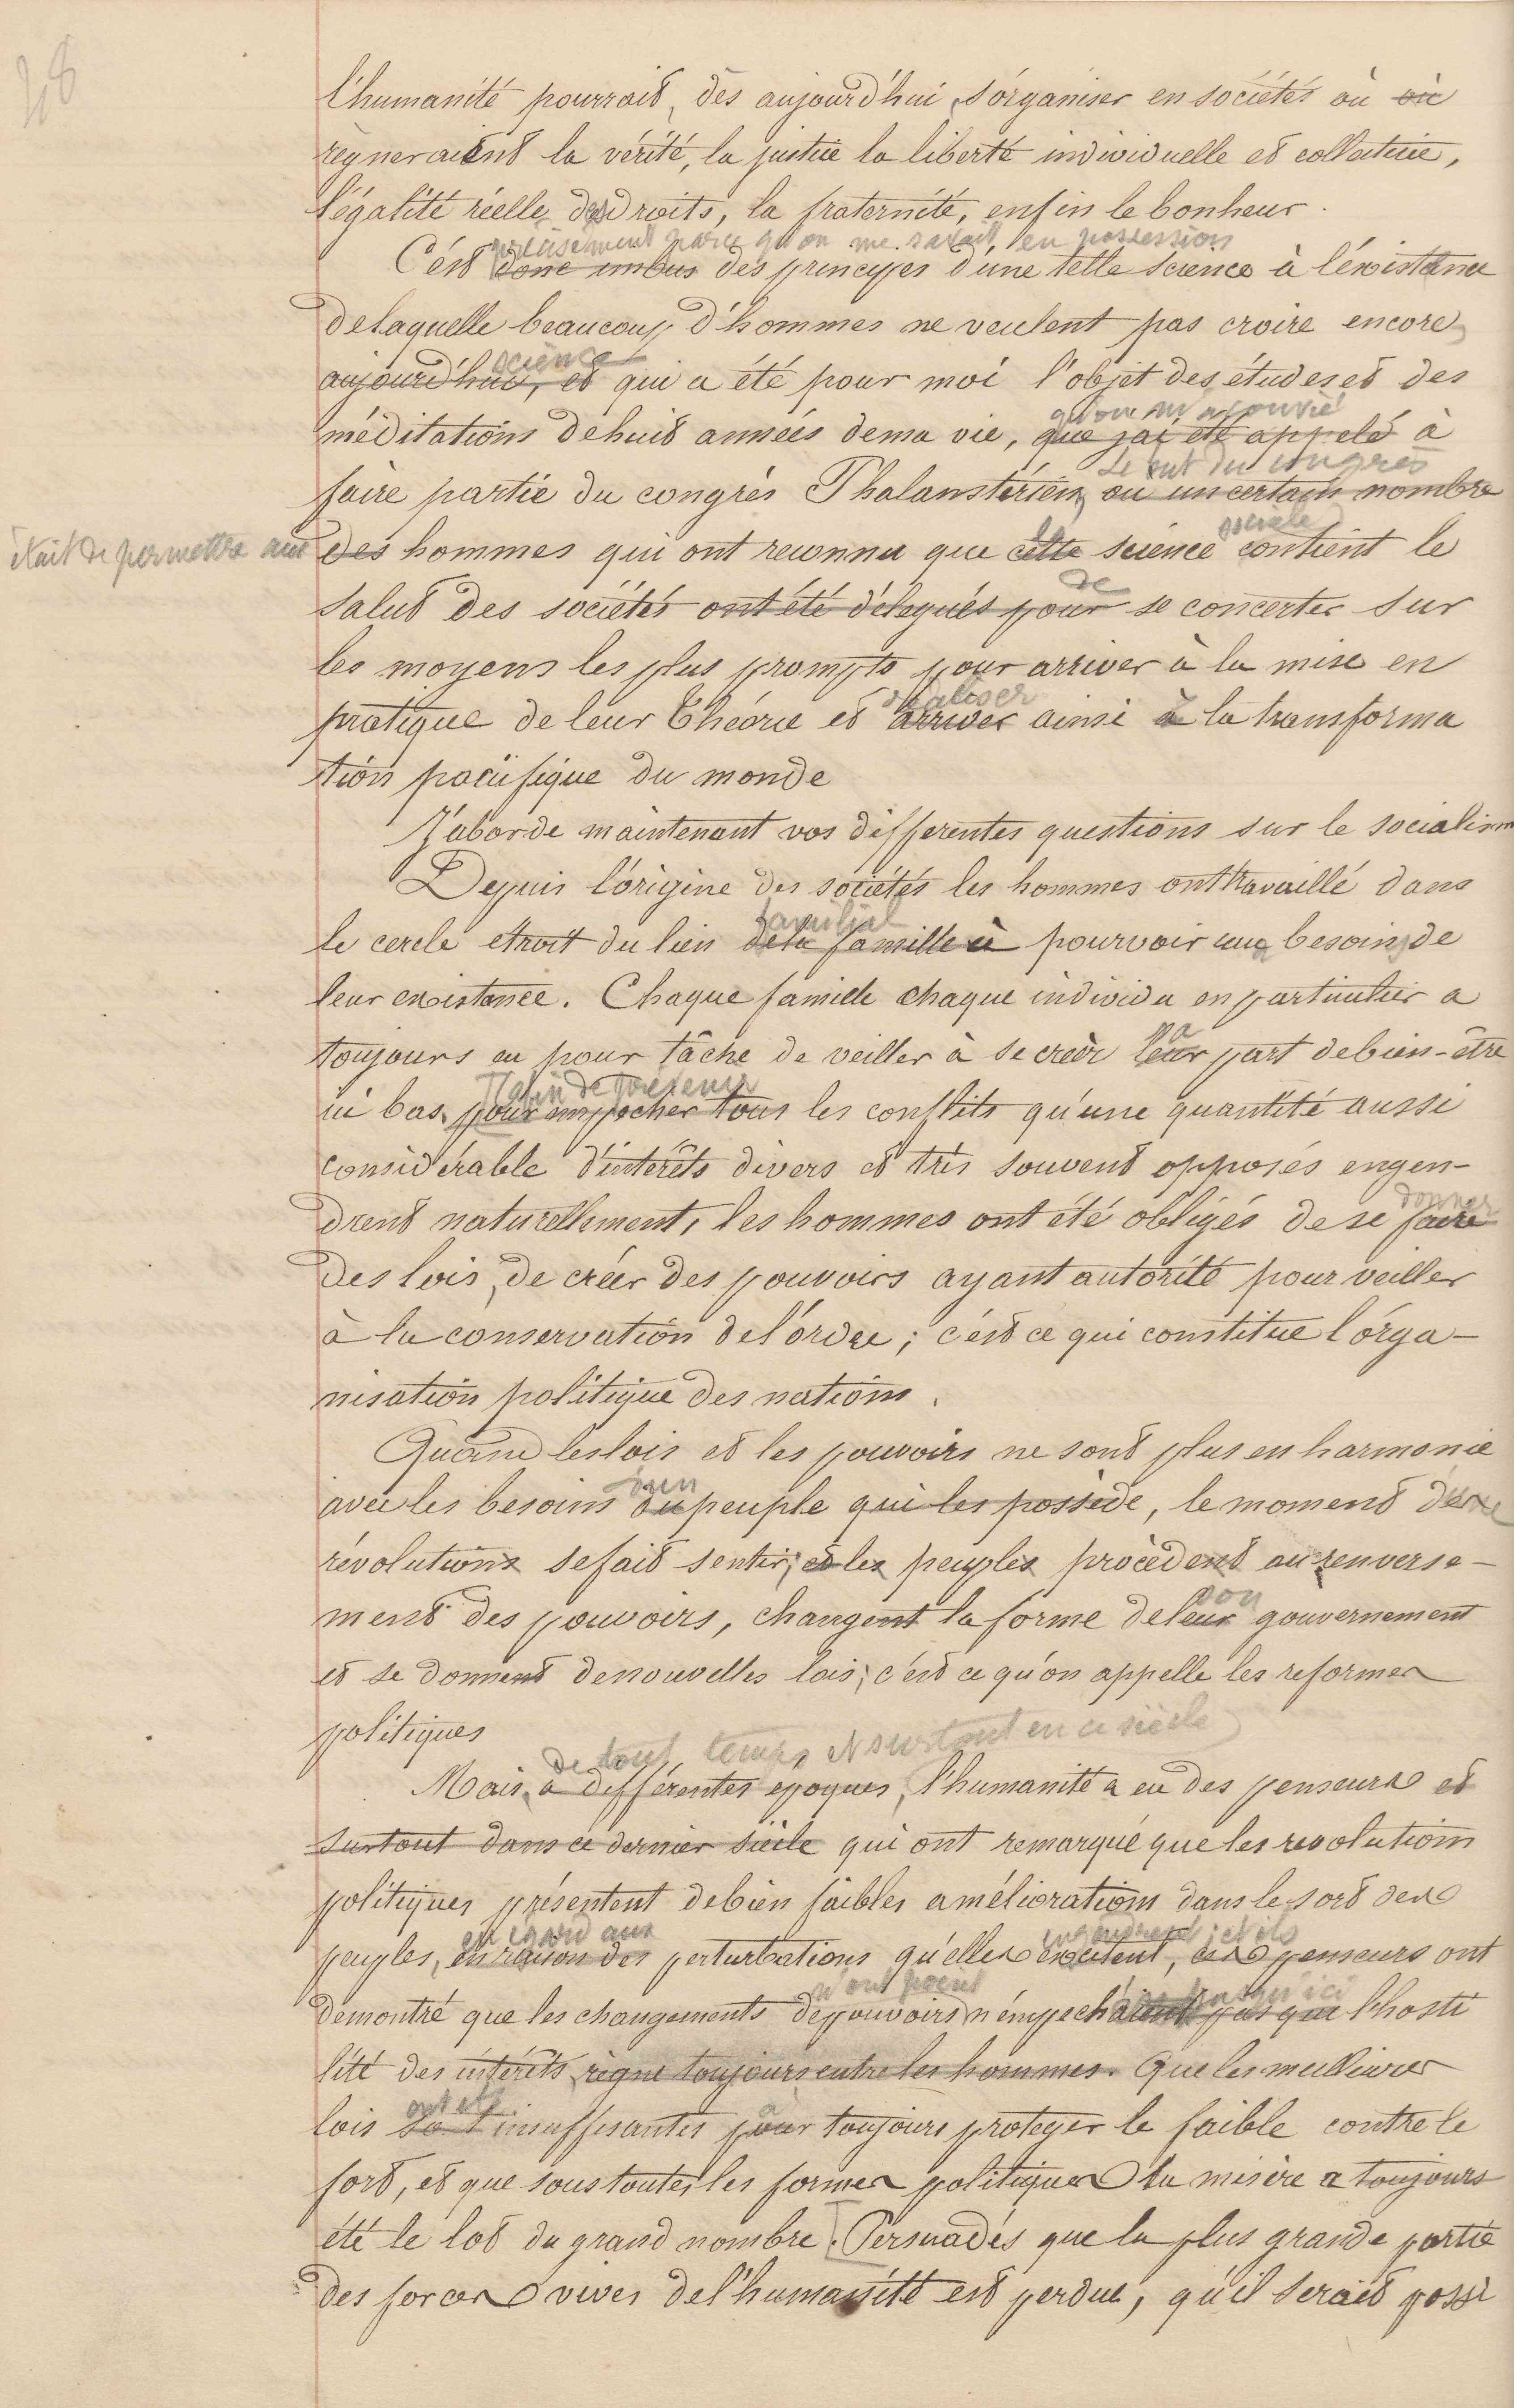 28
l'humanité pourrait, dès aujourd'hui, s'organiser en sociétés où où
règneraient la vérité, la justice la liberté individuelle et collective,
l'égalité réelle des droits, la fraternité, enfin le bonheur.
précisément parce qu'on me savait en possession
C'est donc imbus des principes d'une telle science à l'existence
de laquelle beaucoup d'hommes ne veulent pas croire encore,
science
aujourd'hui, et qui a été pour moi l'objet des études et des
qu'on m'a convié
méditations de huit années de ma vie, que j'ai été appelé à
Le but du congrès
faire partie du congrès Phalanstérien, ou un certain nombre
était de permettre aux des hommes qui ont reconnu que cette la science sociale contient le
de
salut des sociétés ont été délégués pour se concerter sur
les moyens les plus prompts pour arriver à la mise en
réaliser
pratique de leur théorie et arriver ainsi à la transforma
tion pacifique du monde
J'aborde maintenant vos differentes questions sur le socialism
Depuis l'origine des sociétés les hommes ont travaillé dans
familial
le cercle etroit du lien de la famille à pourvoir aux besoins de
leur existence. Chaque famille chaque individu en particulier a
sa
toujours eu pour tâche de veiller à se créér leur part de bien-être
afin de prévenir
ici bas. pour empecher tous les conflits qu'une quantité aussi
considérable d'intérêts divers et très souvent opposés engen-
donner
drent naturellement, les hommes ont été obligés de se faire
des lois, de créér des pouvoirs ayant autorité pour veiller
à la conservation de l'ordre; c'est ce qui constitue l'orga-
nisation politique des nations.
Quand les lois et les pouvoirs ne sont plus en harmonie
d'un
avec les besoins du peuple qui les possède, le moment d'une
révolutions se fait sentir; et les peuples procèdent au renverse-
son
ment des pouvoirs, changent la forme de leur gouvernement
et se donnent de nouvelles lois; c'est ce qu'on appelle les reformes
politiques
de tout temps et surtout en ce siècle
Mais, à différentes époques, l'humanité a eu des penseurs et
surtout dans ce dernier siècle qui ont remarqué que les revolutions
politiques présentent de bien faibles améliorations dans le sort des
eu égard aux engendrent; et ils
peuples, en raison des perturbations qu'elles excitent, ces penseurs ont
n'ont point jusqu'ici
démontré que les changements de pouvoirs n'empechaient pas que l'hosti
lité des intérêts règne toujours entre les hommes. Que les meilleures
ont été à
lois sont insuffisantes pour toujours proteger le faible contre le
fort, et que sous toutes les formes politiques la misère a toujours
été le lot du grand nombre. Persuadés que la plus grande partie
des forces vives de l'humanité est perdue, qu'il serait possi